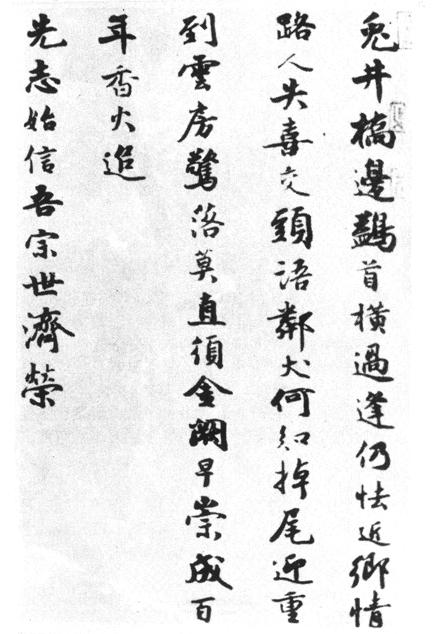 兔井橋邊鷁首橫過逢仍怯近鄉情
路人失喜交頭語鄰犬何知掉尾迎重
到雲房驚落莫直須金闕早崇成百
年香火追
先志始信吾宗世濟榮